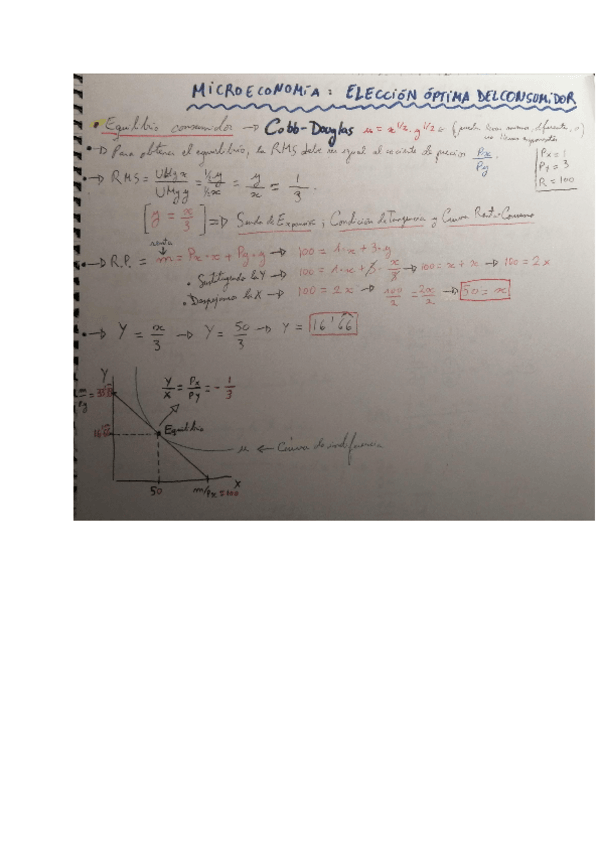 MICROECONOMÍA: ELECCIÓN ÓPTIMA DEL CONSUMIDOR
• Equilibrio consumidor → Cobb-Douglas u = x^1/2 . y^1/2
Px = 1
Py = 3
R = 100
• → Para obtener el equilibrio, la RMS debe ser igual al cociente de precios Px/Py
• → RMS = UMgx/UMgy = 1/y / 1/x = y/x = 1/3.
[y = x/3] ⇒ Senda de Expansión; Condición de Tangencia y Curva Renta-Consumo
renta
• → R.P. = m = Px·x + Py·y → 100 = 1·x + 3·y
• Sustituyendo la Y → 100 = 1·x + 3·x/3 → 100 = x + x → 100 = 2x
• Despejamos la X → 100 = 2x → 100/2 = 2x/2 → 50 = x
• → Y = x/3 → Y = 50/3 → Y = 16'66
Y
m/Py = 33'33
Y/X = Px/Py = - 1/3
Equilibrio
16'66
u ← Curva de indiferencia
50
m/Px = 100
X